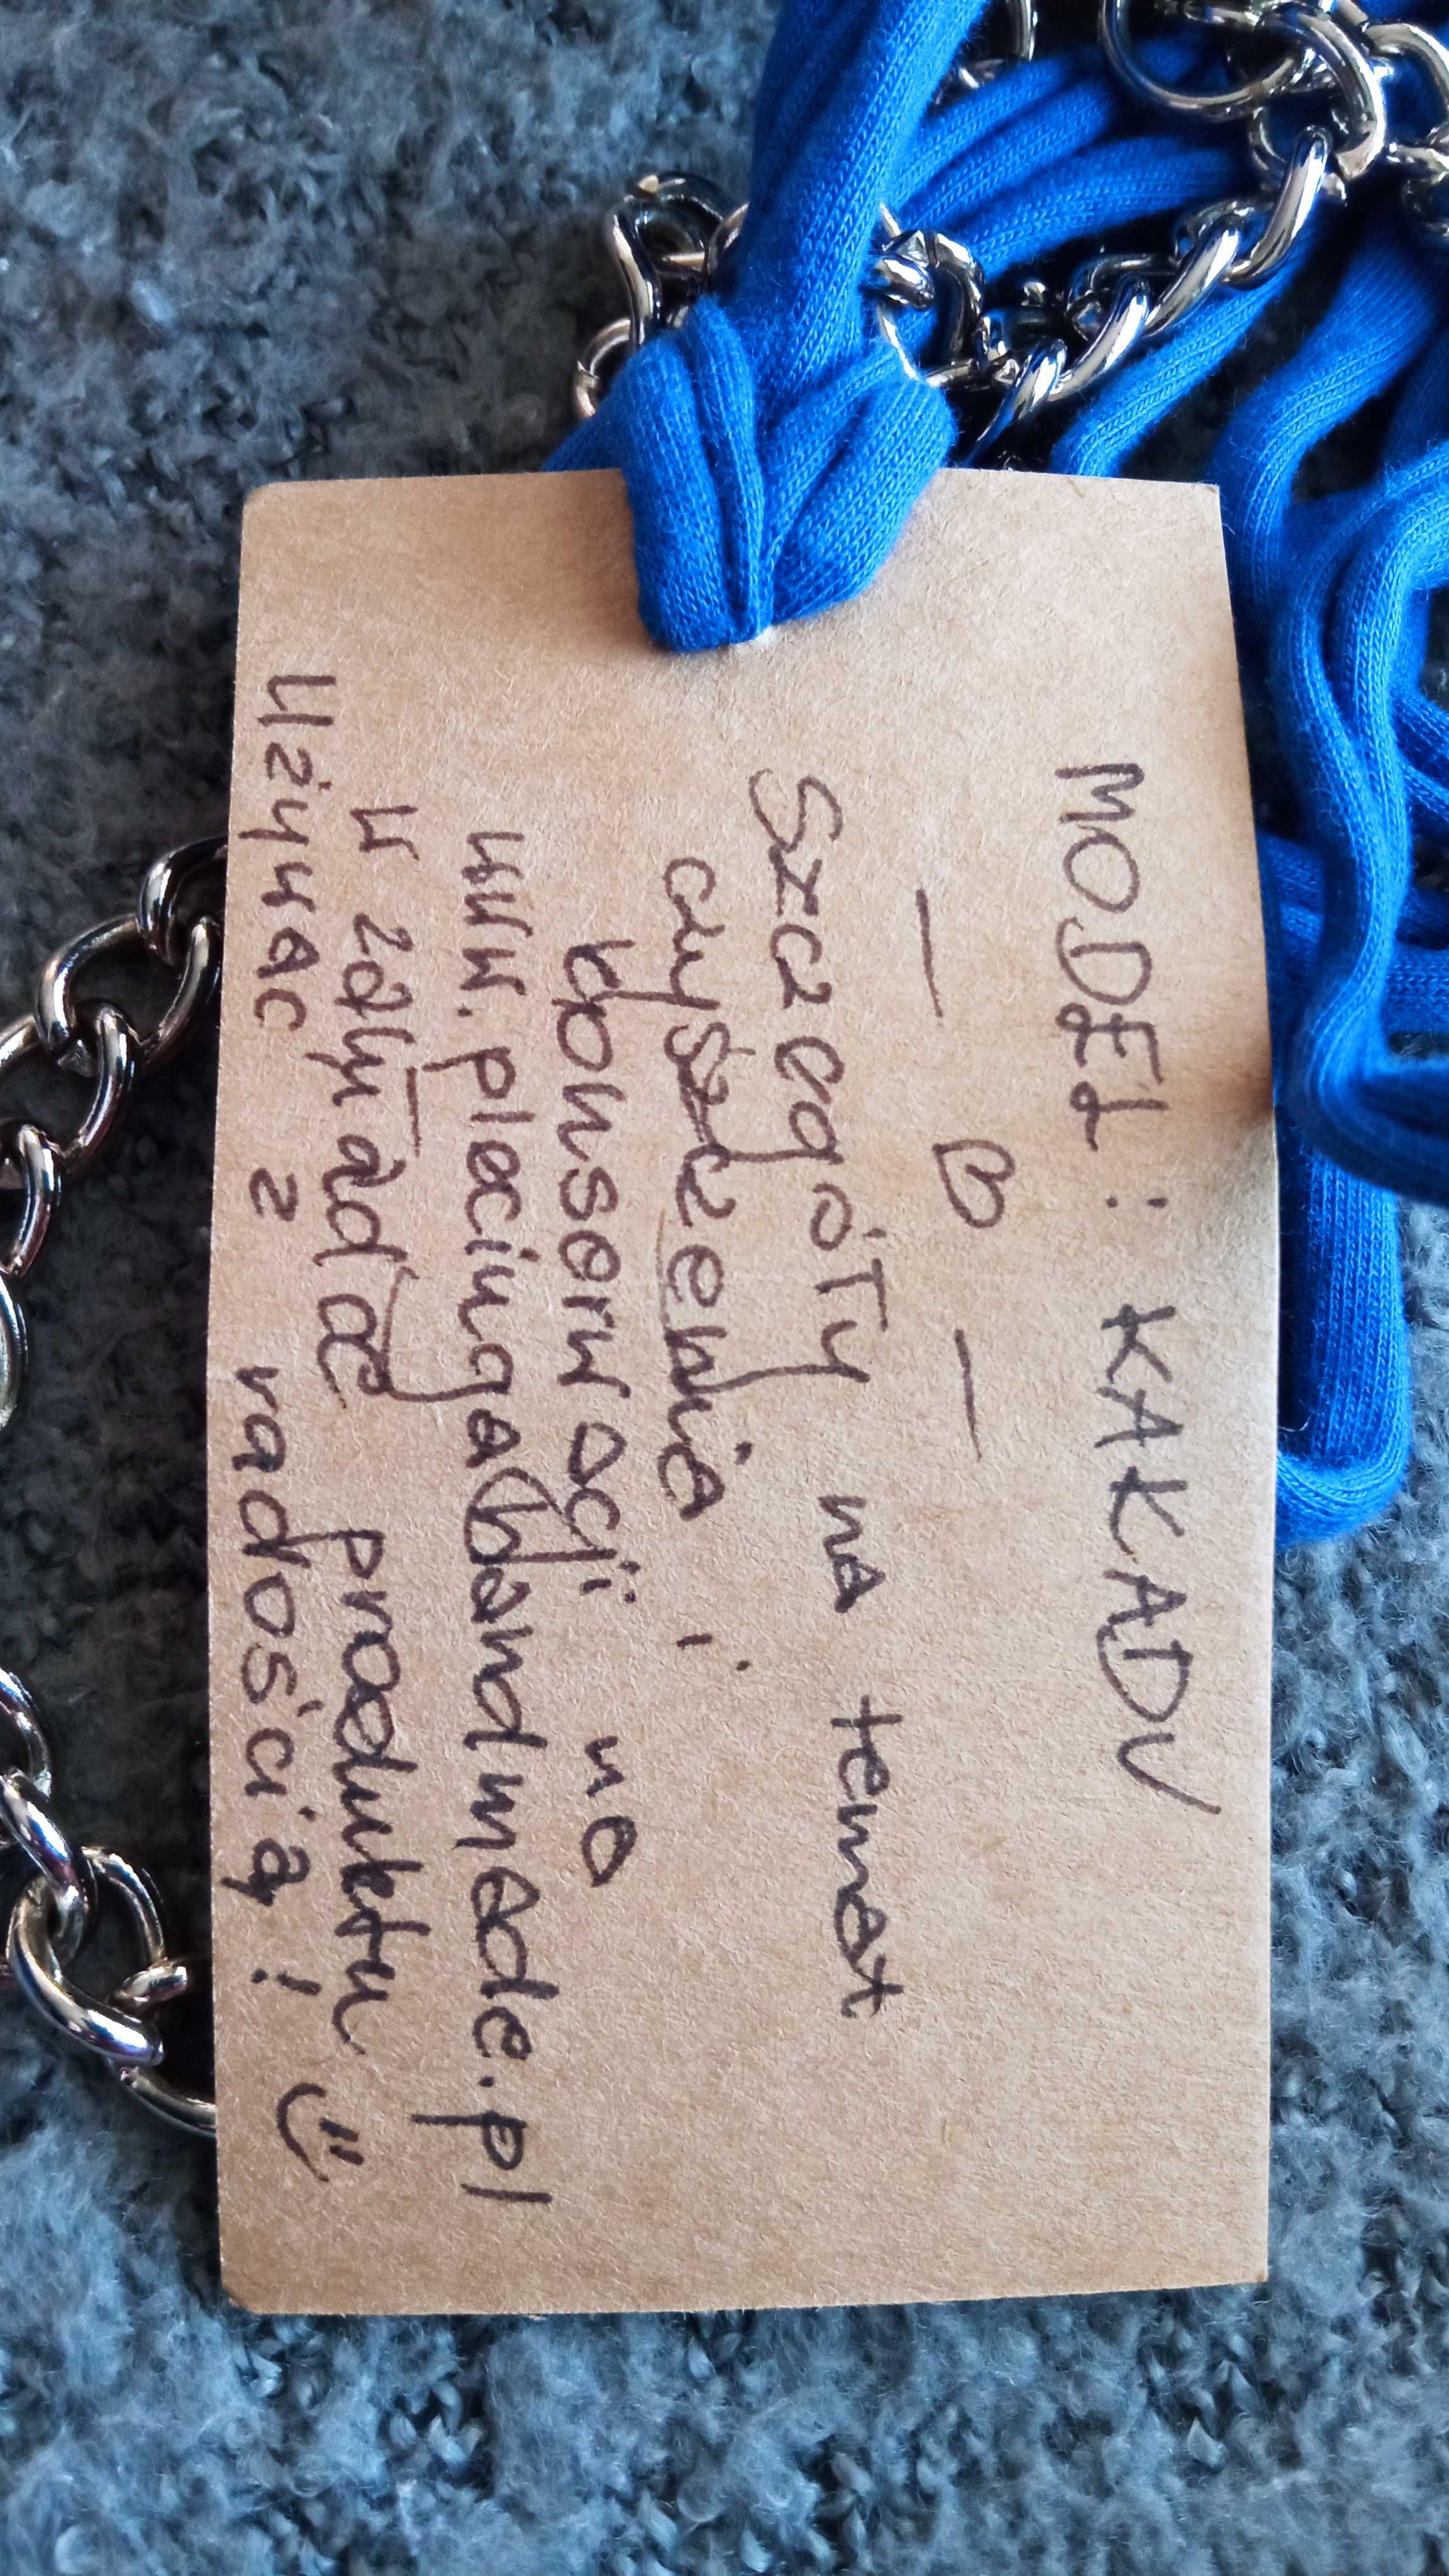 MODEL: KAKADU
Szczegóły na temat
czyszczenia i
konserwacji na
www.placingahandmade.pl
w zakładce produktu
Używać z radością!